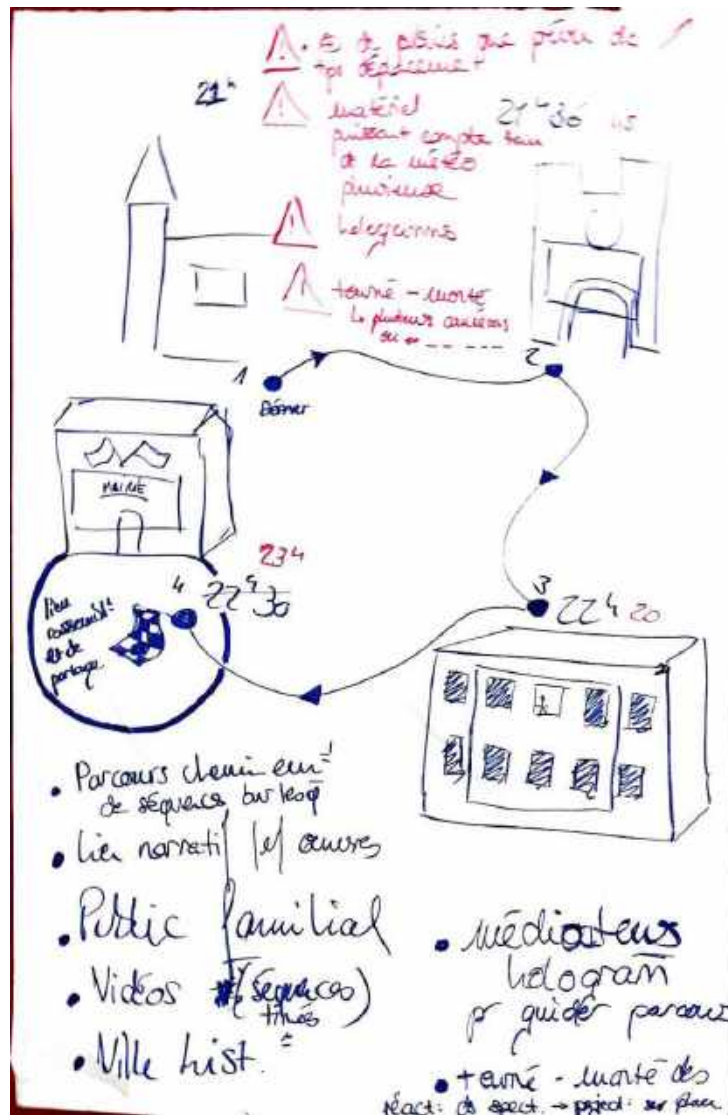 21h
• de pluie
tps déplacement
matériel
puissant compte tenu
de la météo
pluvieuse
21h30 45
hologrammes
tourné - monté
plusieurs caméras
ou
1
Démar
2
MAIRIE
23h
4 22h30
lieu
rassemblt
et de
partage
3 22h 20
• Parcours cheminemt
de séquences burlesq
• Lien narratif œuvres
• Public familial
• Vidéos (séquences)
• Ville hist.
• médiateurs
hologram
pr guider parcours
• tourné - monté des
réact: de spect. → project: sur place